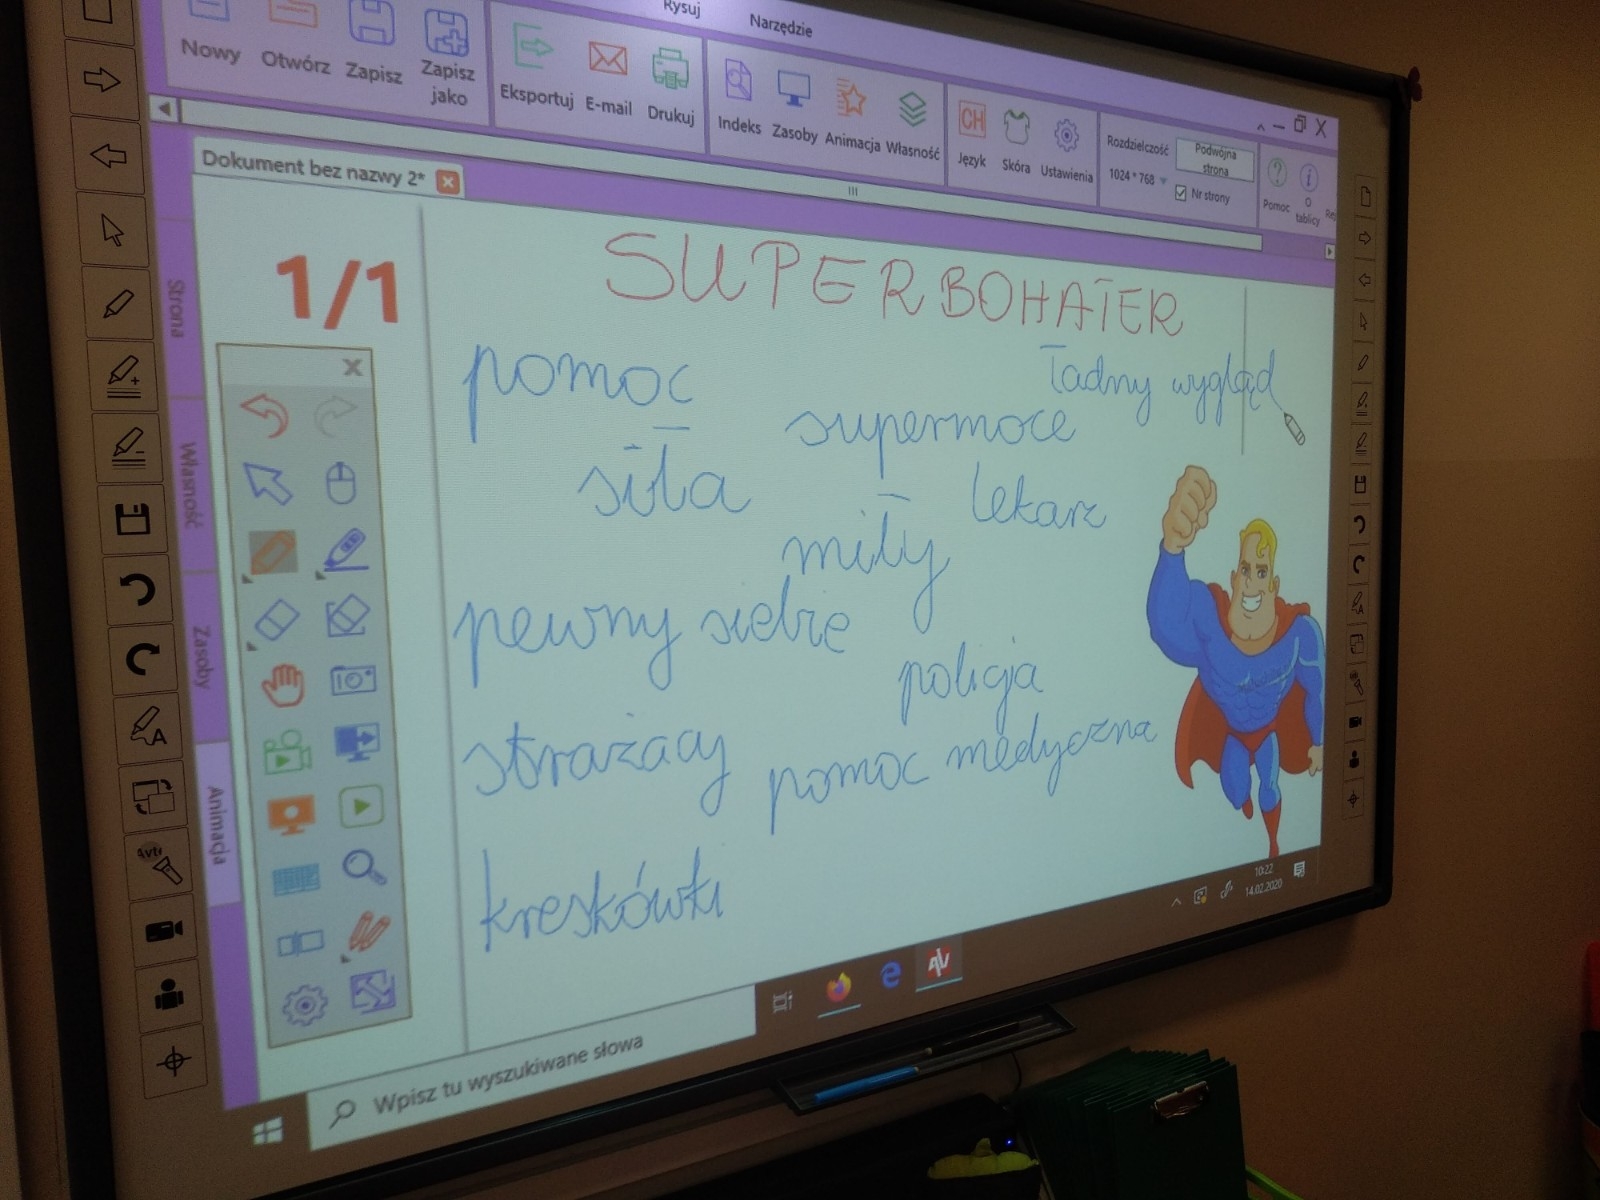 Rysuj Narzędzie
Nowy Otwórz Zapisz Zapisz jako
Eksportuj E-mail Drukuj
Indeks Zasoby Animacja Własność
CH
Język Skóra Ustawienia
Rozdzielczość
1024 * 768
Podwójna strona
Nr strony
Pomoc O tablicy
Dokument bez nazwy 2*
Strona
Własność
Zasoby
Animacja
1/1
SUPERBOHATER
pomoc
ładny wygląd
supermoce
siła
lekarz
miły
pewny siebie
policja
strażacy
pomoc medyczna
kreskówki
10:22
14.02.2020
Wpisz tu wyszukiwane słowa